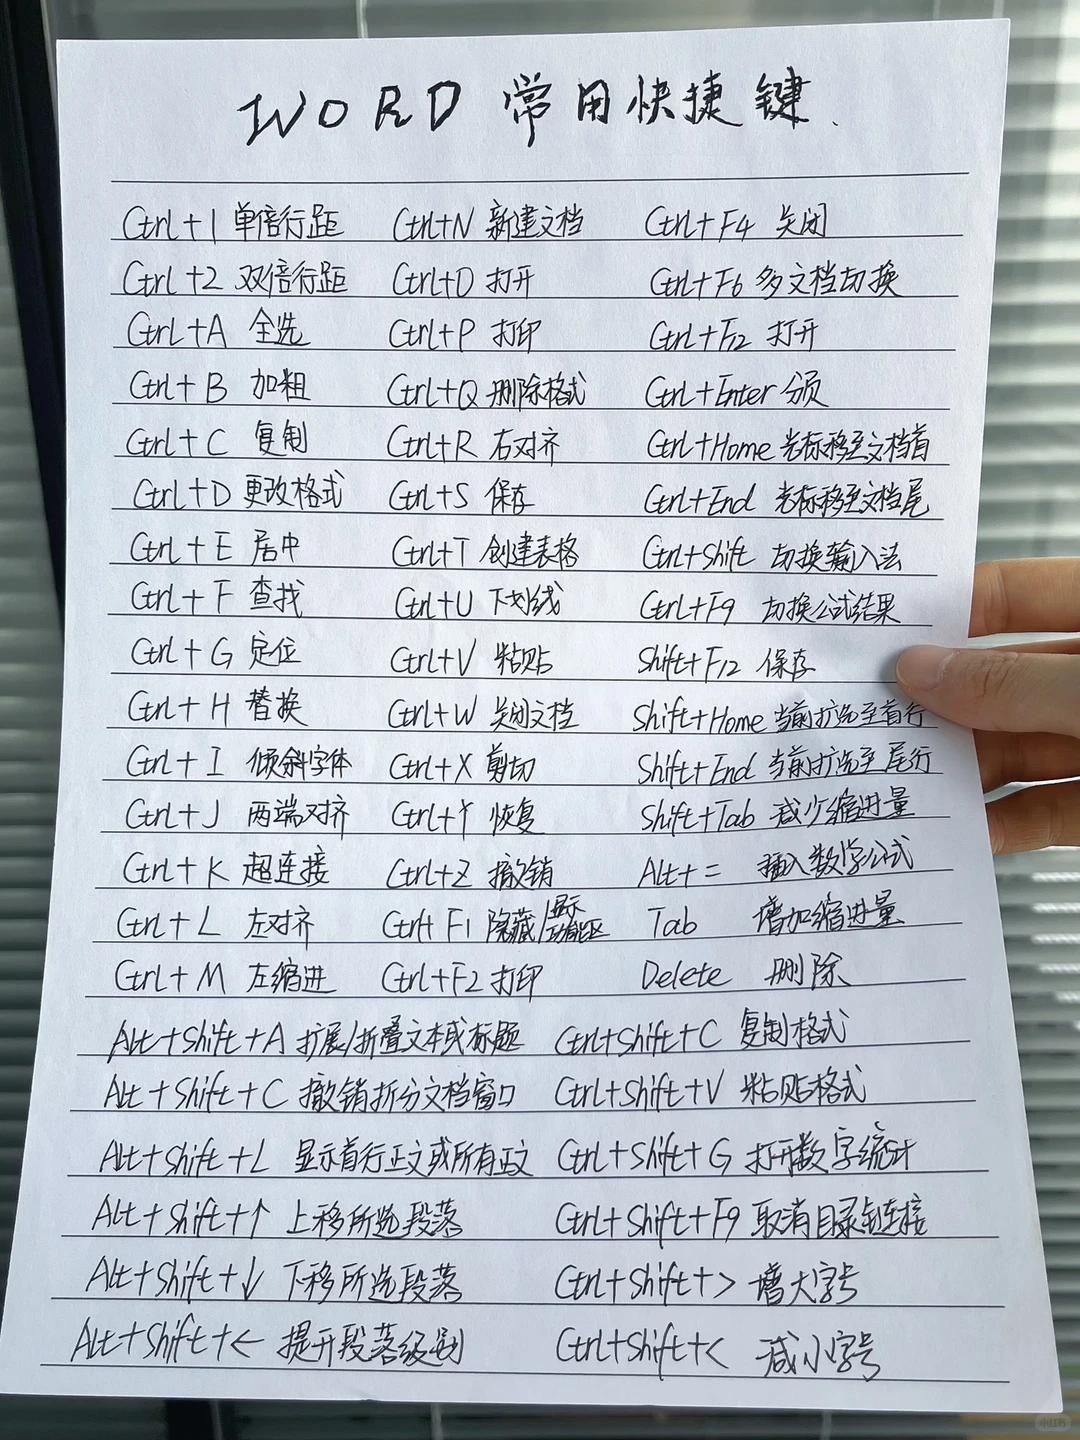 WORD 常用快捷键.
Ctrl+1 单倍行距 Ctrl+N 新建文档 Ctrl+F4 关闭
Ctrl+2 双倍行距 Ctrl+O 打开 Ctrl+F6 多文档切换
Ctrl+A 全选 Ctrl+P 打印 Ctrl+F12 打开
Ctrl+B 加粗 Ctrl+Q 删除格式 Ctrl+Enter 分页
Ctrl+C 复制 Ctrl+R 右对齐 Ctrl+Home 光标移至文档首
Ctrl+D 更改格式 Ctrl+S 保存 Ctrl+End 光标移至文档尾
Ctrl+E 居中 Ctrl+T 创建表格 Ctrl+Shift 切换输入法
Ctrl+F 查找 Ctrl+U 下划线 Ctrl+F9 切换公式结果
Ctrl+G 定位 Ctrl+V 粘贴 Shift+F12 保存
Ctrl+H 替换 Ctrl+W 关闭文档 Shift+Home 当前扩选至首行
Ctrl+I 倾斜字体 Ctrl+X 剪切 Shift+End 当前扩选至尾行
Ctrl+J 两端对齐 Ctrl+Y 恢复 Shift+Tab 减少缩进量
Ctrl+K 超连接 Ctrl+Z 撤销 Alt+= 插入数学公式
Ctrl+L 左对齐 Ctrl+F1 隐藏/显示功能区 Tab 增加缩进量
Ctrl+M 左缩进 Ctrl+F2 打印 Delete 删除
Alt+Shift+A 扩展/折叠文本或标题 Ctrl+Shift+C 复制格式
Alt+Shift+C 撤销拆分文档窗口 Ctrl+Shift+V 粘贴格式
Alt+Shift+L 显示首行正文或所有正文 Ctrl+Shift+G 打开数字统计
Alt+Shift+↑ 上移所选段落 Ctrl+Shift+F9 取消目录链接
Alt+Shift+↓ 下移所选段落 Ctrl+Shift+> 增大字号
Alt+Shift+← 提升段落级别 Ctrl+Shift+< 减小字号
小红书